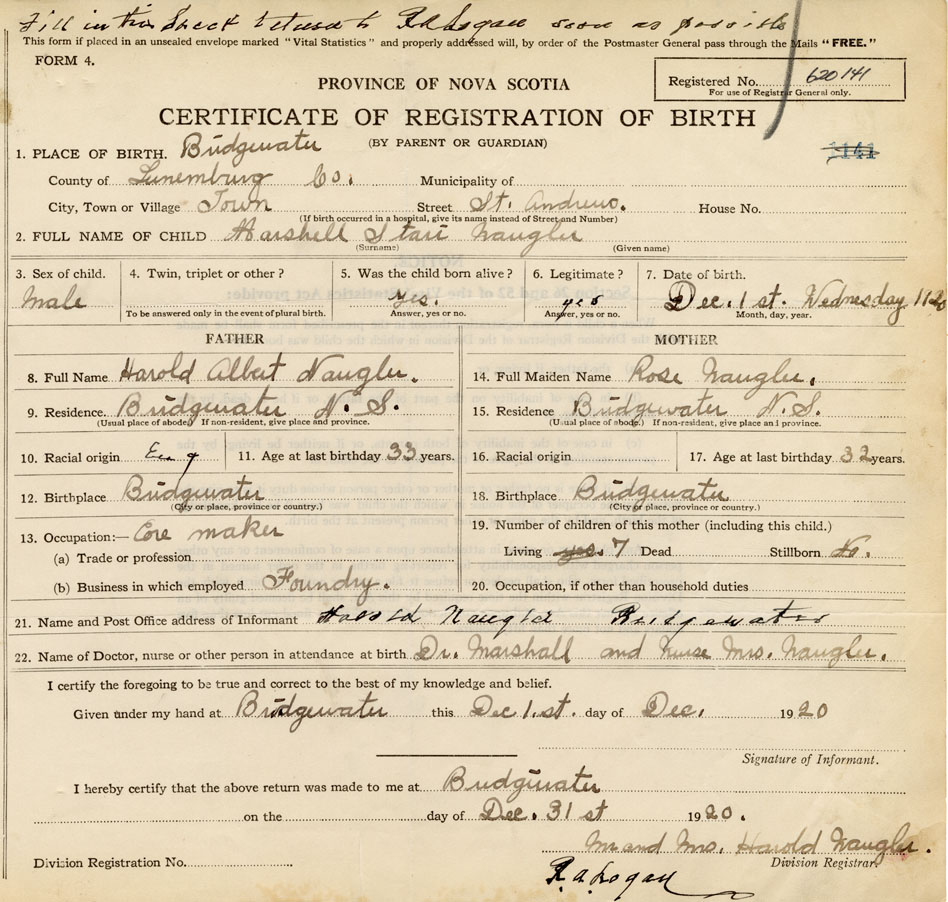 Fill in this Sheet & return to R.A. Logan soon as possible
This form if placed in an unsealed envelope marked "Vital Statistics" and properly addressed will, by order of the Postmaster General pass through the Mails "FREE."
FORM 4.
PROVINCE OF NOVA SCOTIA
Registered No. 620141
For use of Registrar General only.
CERTIFICATE OF REGISTRATION OF BIRTH
(BY PARENT OR GUARDIAN)
1141
1. PLACE OF BIRTH. Bridgewater
County of Lunemburg Co. Municipality of
City, Town or Village Town Street St. Andrews. House No.
(If birth occurred in a hospital, give its name instead of Street and Number)
2. FULL NAME OF CHILD Harshell Starr Naugler
(Surname) (Given name)
3. Sex of child. 4. Twin, triplet or other? 5. Was the child born alive? 6. Legitimate? 7. Date of birth.
Male yes. yes Dec. 1st. Wednesday
To be answered only in the event of plural birth. Answer, yes or no. Answer, yes or no. Month, day, year.
FATHER MOTHER
8. Full Name Harold Albert Naugler. 14. Full Maiden Name Rose Naugler.
9. Residence. Bridgewater N. S. 15. Residence Bridgewater N.S.
(Usual place of abode) If non-resident, give place and province. (Usual place of abode.) If non-resident, give place and province.
10. Racial origin Eng 11. Age at last birthday 33 years. 16. Racial origin 17. Age at last birthday 32 years.
12. Birthplace Bridgewater 18. Birthplace Bridgewater
(City or place, province or country.) (City or place, province or country.)
13. Occupation:— Core maker 19. Number of children of this mother (including this child.)
(a) Trade or profession Living yes. 7 Dead Stillborn No.
(b) Business in which employed Foundry. 20. Occupation, if other than household duties
21. Name and Post Office address of Informant Harold Naugler Bridgewater
22. Name of Doctor, nurse or other person in attendance at birth Dr. Marshall and Nurse Mrs. Naugler.
I certify the foregoing to be true and correct to the best of my knowledge and belief.
Given under my hand at Bridgewater this Dec 1.st. day of Dec. 1920
Signature of Informant.
I hereby certify that the above return was made to me at Bridgewater
on the day of Dec. 31 st 1920.
Mr and Mrs. Harold Naugler.
Division Registration No. Division Registrar.
R.A. Logan